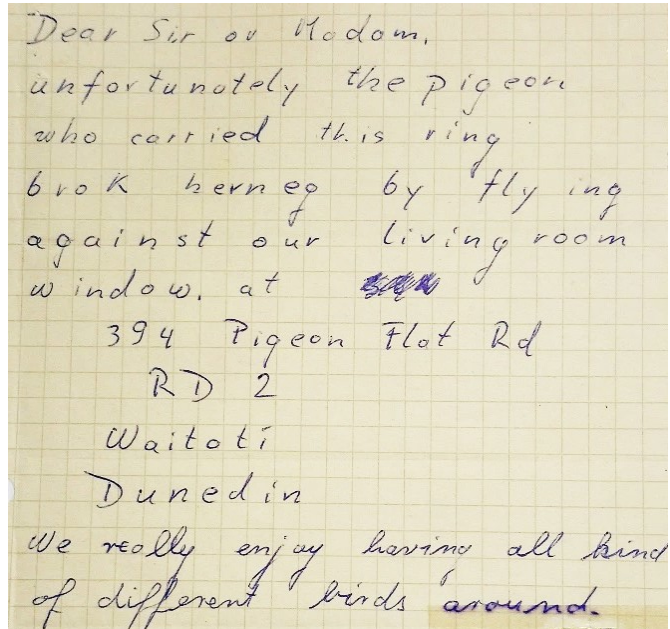 Dear Sir or Madam,
unfortunately the pigeon
who carried this ring
brok herneg by flying
against our living room
window. at
394 Pigeon Flat Rd
RD 2
Waitati
Dunedin
We really enjoy having all kind
of different birds around.